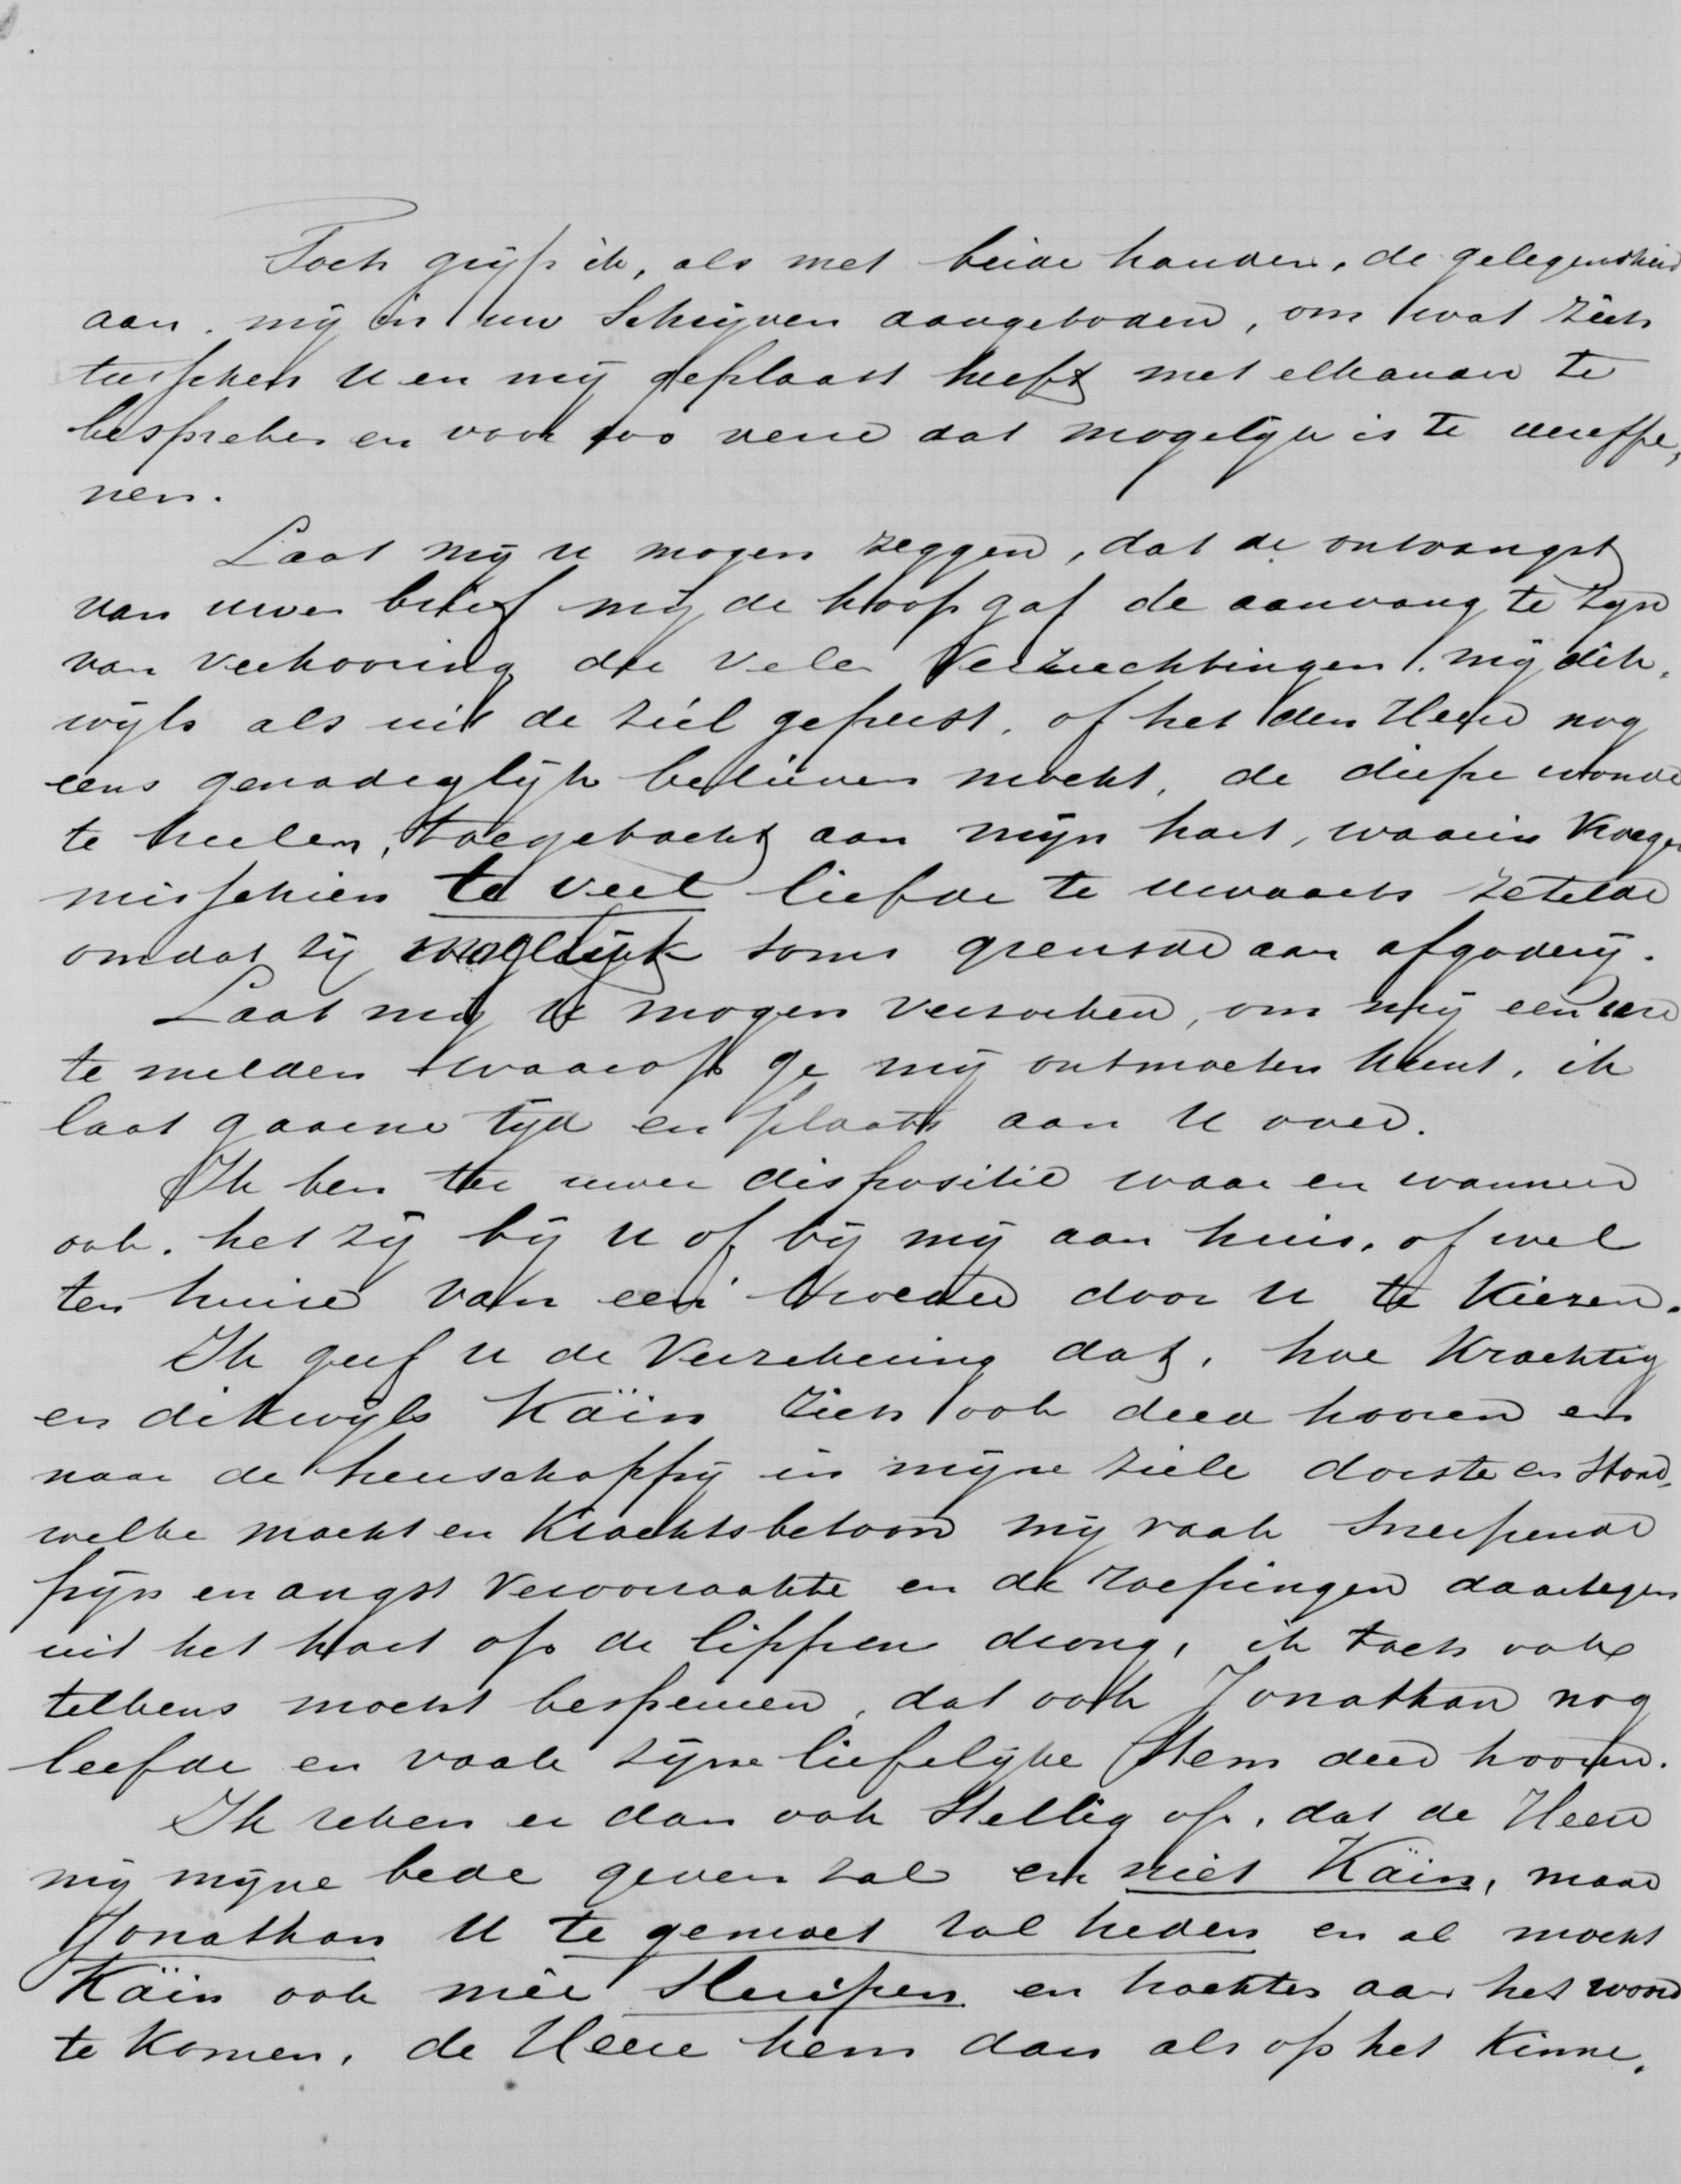 Toch grijp ik, als met beide handen, de gelegenheid
aan, mij in uw Schrijven aangeboden, om wat zich
tusschen U en mij geplaatst heeft met elkander te
bespreken en voor zoo verre dat mogelijk is te vereffe,
nen.
Laat mij U mogen zeggen, dat de ontvangst
van uwen brief mij de hoop gaf de aanvang te zijn
van verhooring der vele verzuchtingen, mij dik,
wijls als uit de ziel geperst, of het den Heere nog
eens genadeglijk believen mocht, de diepe wonde
te heelen, toegebracht aan mijn hart, waarin vroeger
misschien te veel liefde te uwaarts zetelde
omdat zij mogelijk soms grensde aan afgoderij.
Laat mij U mogen verzoeken, om mij een uur
te melden waarop ge mij ontmoeten kunt, ik
laat gaarne tijd en plaats aan U over.
Ik ben ter uwer dispositie waar en wanneer
ook, het zij bij U of bij mij aan huis, of wel
ten huize van een broeder door U te kiezen.
Ik geef U de Verzekering dat, hoe krachtig
en dikwijls Käin zich ook deed hooren en
naar de heerschappij in mijne ziele dorste en stond,
welke macht en krachtsbetoon mij vaak snerpende
pijn en angst veroorzaakte en de roepingen daartegen
uit het hart op de lippen drong, ik toch ook
telkens mocht bespeuren, dat ook Jonathan nog
leefde en vaak zijne liefelijke Stem deed hooren.
Ik reken er dan ook Stellig op, dat de Heere
mij mijne bede geven zal en niet Käin, maar
Jonathan U te gemoet zal treden en al mocht
Käin ook mêe Sluipen en trachten aan het woord
te komen, de Heere hem dan als op het kinne,